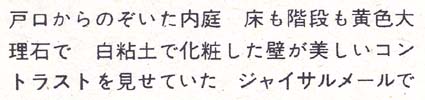 戸口からのぞいた内庭　床も階段も黄色大
理石で　白粘土で化粧した壁が美しいコン
トラストを見せていた　ジャイサルメールで